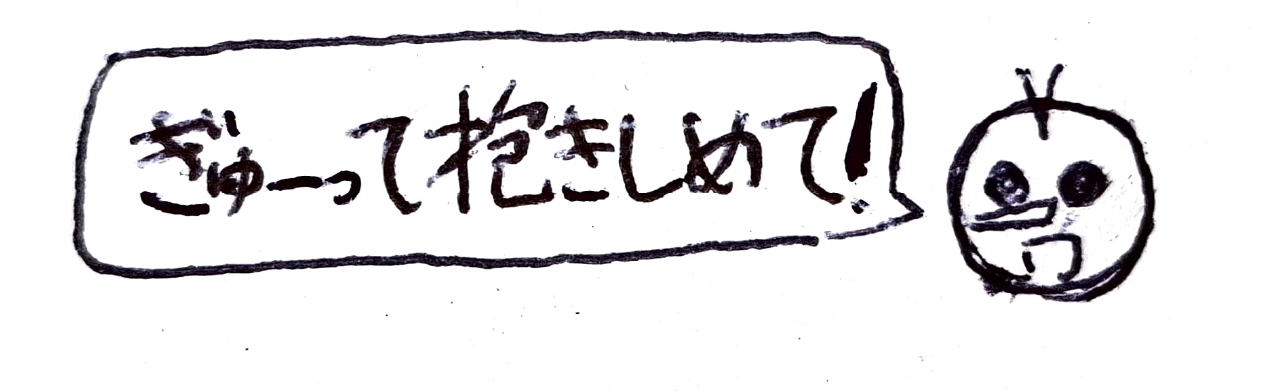 ぎゅーって抱きしめて!